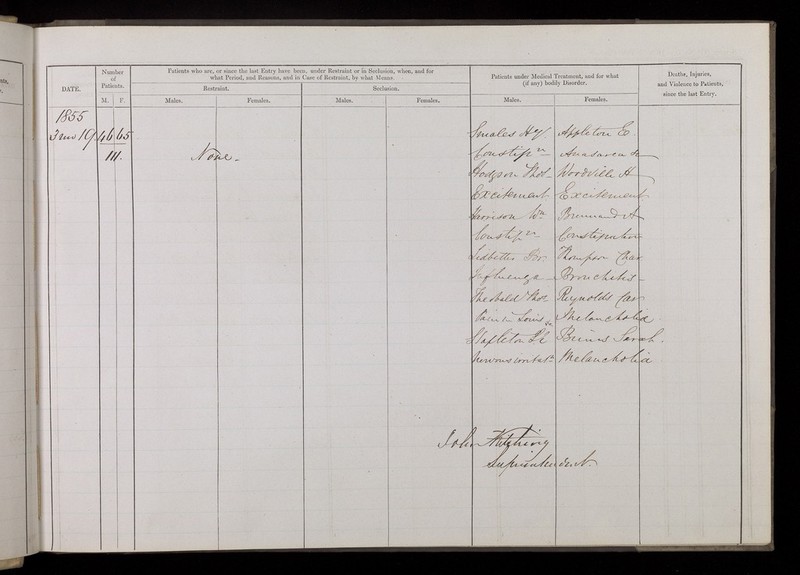 DATE.
Number of Patients.
M. F.
Patients who are, or since the last Entry have been, under Restraint or in Seclusion, when, and for
what Period, and Reasons, and in Case of Restraint, by what Means.
Restraint. Seclusion.
Males. Females. Males. Females.
Patients under Medical Treatment, and for what
(if any) bodily Disorder.
Males. Females.
Deaths, Injuries,
and Violence to Patients,
since the last Entry.
1855
46 65
111.
None -
Smales Hy Appleton E
Constipn Anasarca
Hodgson Thos Woodville H
Excitement Excitement
Morrison Wm
Constipn Constipation
Ledbetter Thompson Char
Influenza Bronchitis
Theobald Thos Reynolds Car
Pain in Loins Melancholia
Stapleton Burns Sarah.
Nervous Melancholia
John
Superintendent.